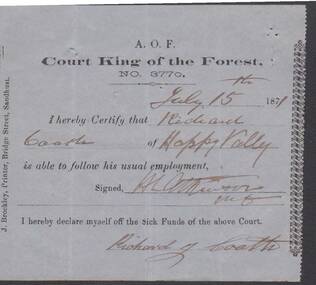 A. O. F.
Court King of the Forest,
NO. 3770.
July 15th 1871
I hereby Certify that Richard
Coade of Happy Vally
is able to follow his usual employment,
Signed,
I hereby declare myself off the Sick Funds of the above Court.
Richard
J. Brockley, Printer, Bridge Street, Sandhurst.